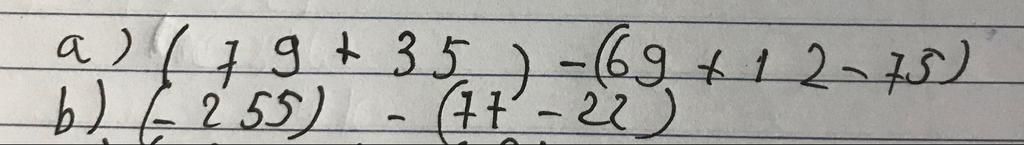 a) (79 + 35) - (69 + 12 - 75)
b) (- 255) - (77 - 22)